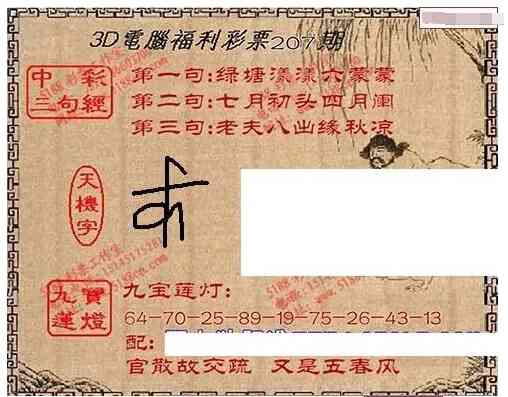 3D電腦福利彩票207期
中彩
三句經
第一句:绿塘漾漾六蒙蒙
第二句:七月初头四月阑
第三句:老夫八出缘秋凉
天機字
九寶
蓮燈
九宝莲灯:
64-70-25-89-19-75-26-43-13
配:
官散故交疏 又是五春风